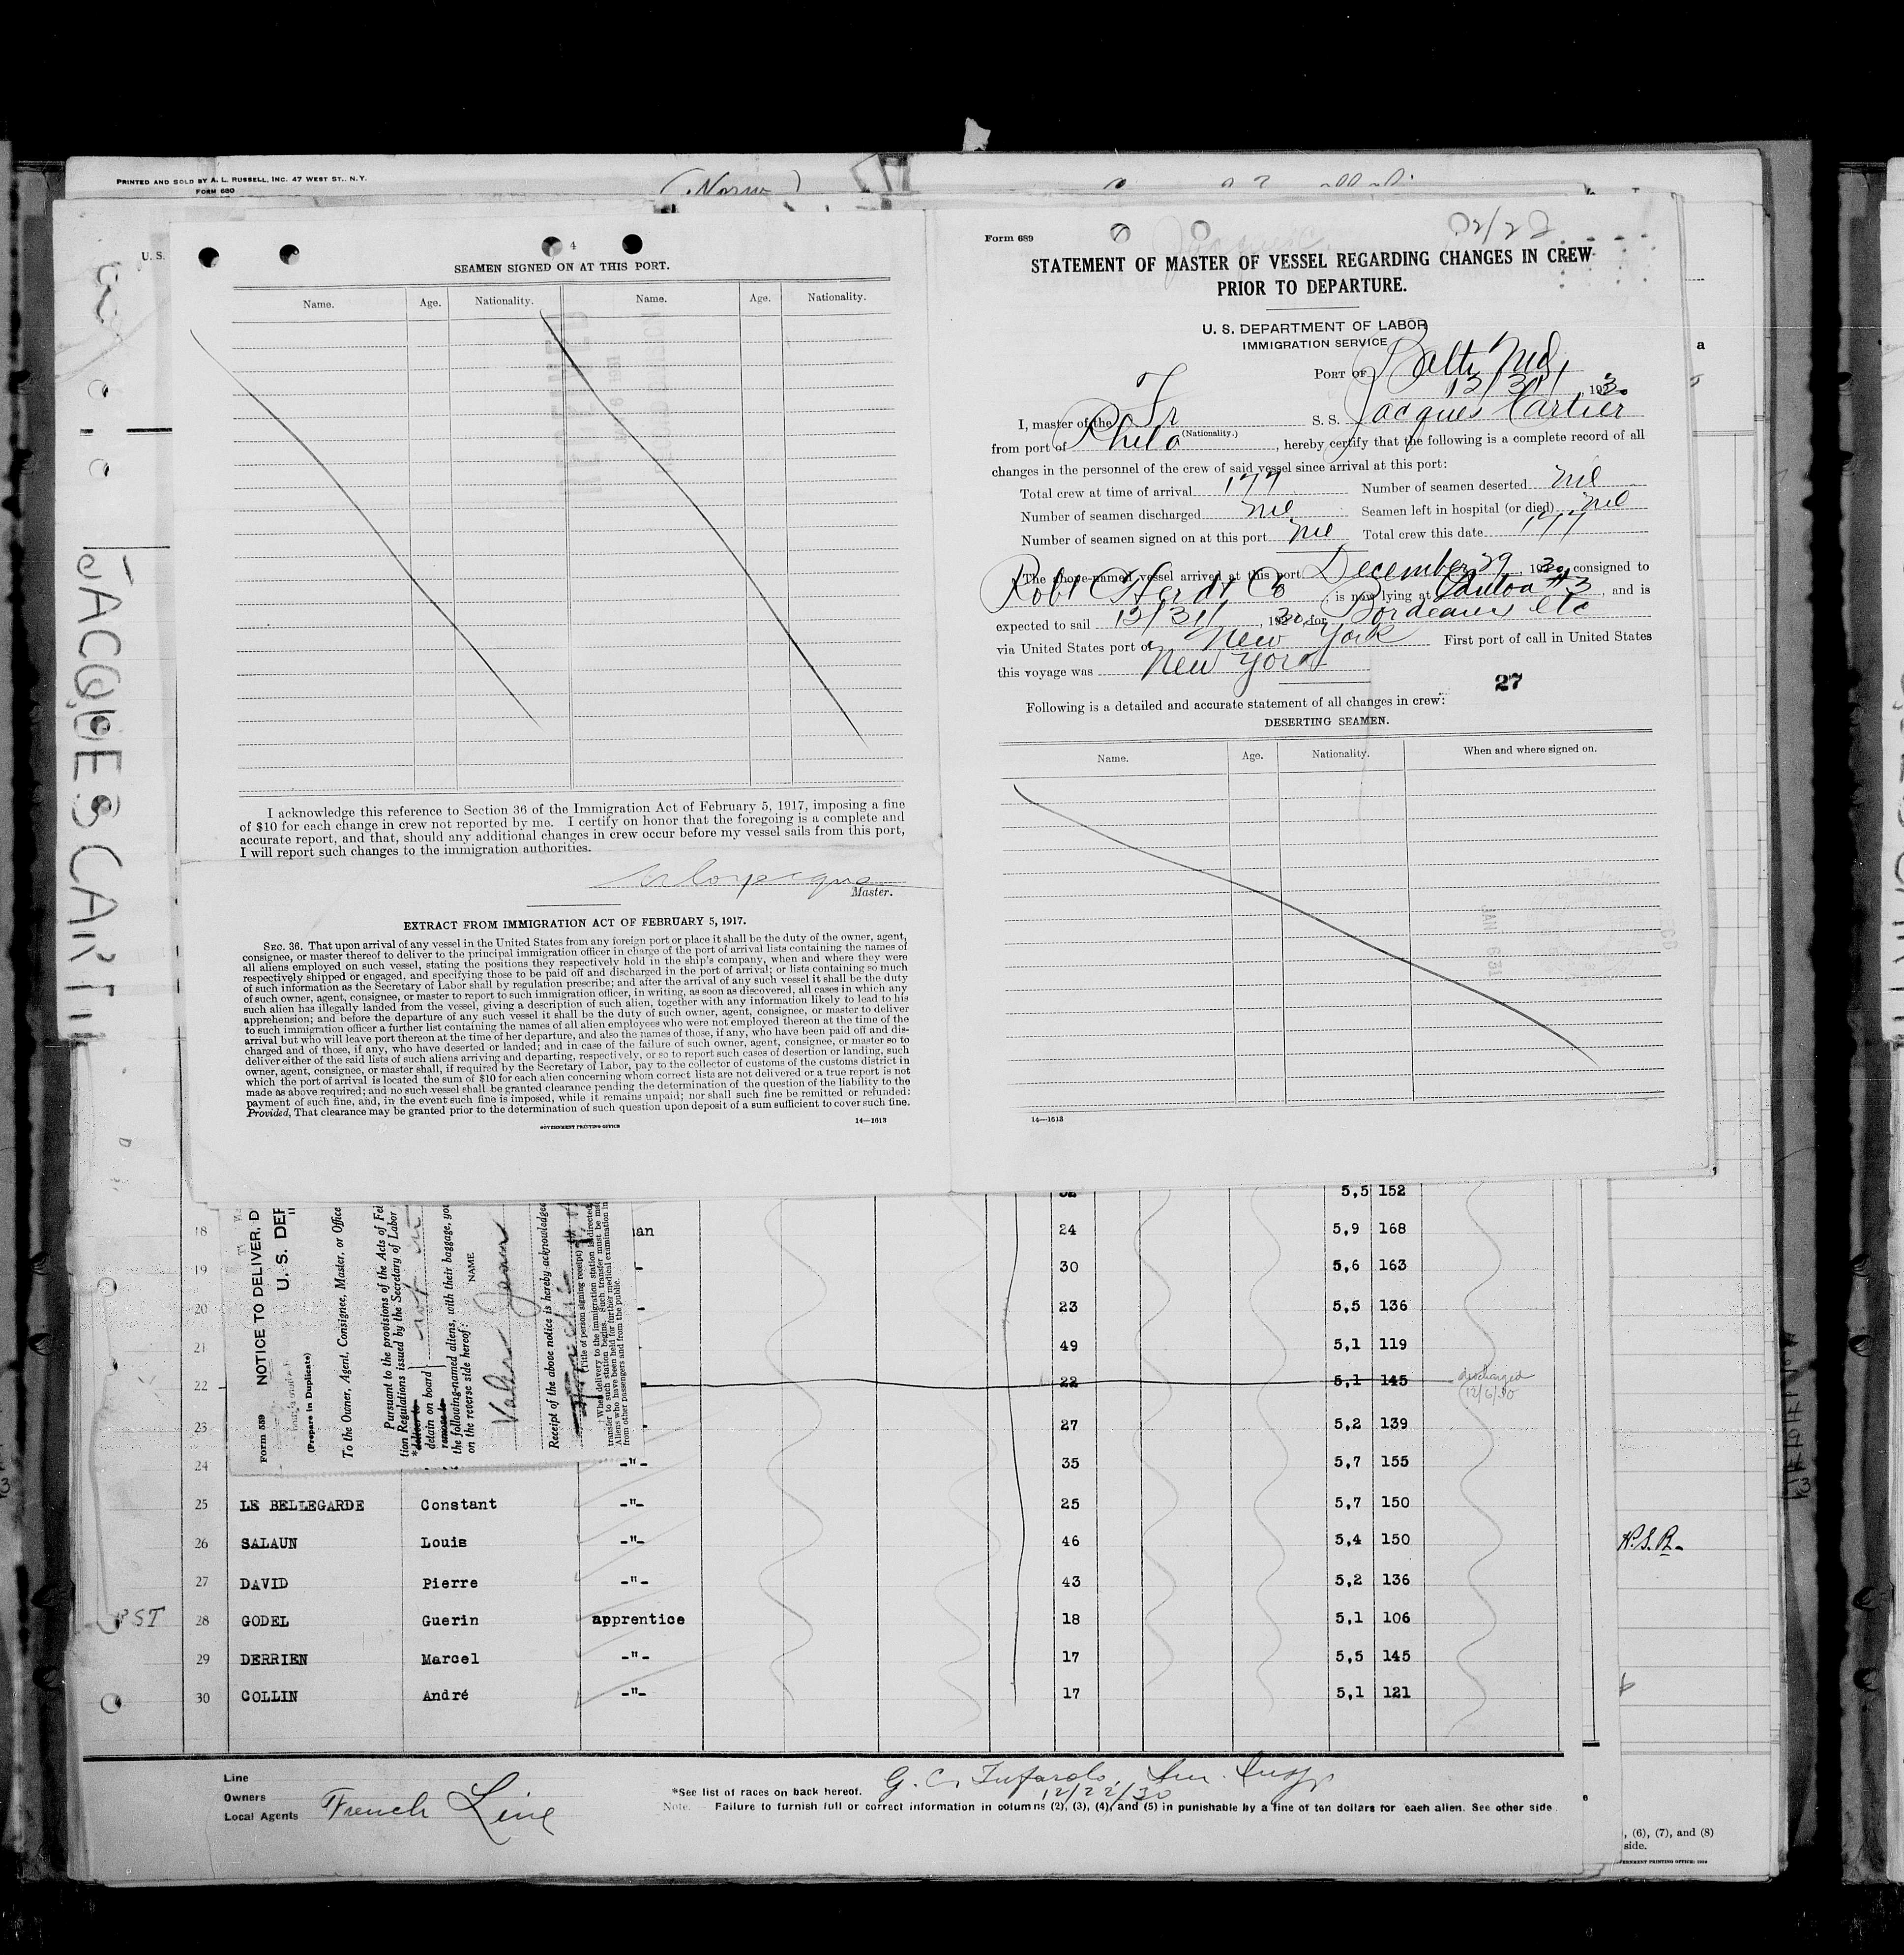 PRINTED AND SOLD BY A. L. RUSSELL, INC. 47 WEST ST., N.Y.
FORM 680
U. S.
JACQUES CARTI
4
SEAMEN SIGNED ON AT THIS PORT.
Name. Age. Nationality. Name. Age. Nationality.
I acknowledge this reference to Section 36 of the Immigration Act of February 5, 1917, imposing a fine
of $10 for each change in crew not reported by me. I certify on honor that the foregoing is a complete and
accurate report, and that, should any additional changes in crew occur before my vessel sails from this port,
I will report such changes to the immigration authorities.
Master.
EXTRACT FROM IMMIGRATION ACT OF FEBRUARY 5, 1917.
SEC. 36. That upon arrival of any vessel in the United States from any foreign port or place it shall be the duty of the owner, agent,
consignee, or master thereof to deliver to the principal immigration officer in charge of the port of arrival lists containing the names of
all aliens employed on such vessel, stating the positions they respectively hold in the ship's company, when and where they were
respectively shipped or engaged, and specifying those to be paid off and discharged in the port of arrival; or lists containing so much
of such information as the Secretary of Labor shall by regulation prescribe; and after the arrival of any such vessel it shall be the duty
of such owner, agent, consignee, or master to report to such immigration officer, in writing, as soon as discovered, all cases in which any
such alien has illegally landed from the vessel, giving a description of such alien, together with any information likely to lead to his
apprehension; and before the departure of any such vessel it shall be the duty of such owner, agent, consignee, or master to deliver
to such immigration officer a further list containing the names of all alien employees who were not employed thereon at the time of the
arrival but who will leave port thereon at the time of her departure, and also the names of those, if any, who have been paid off and dis-
charged and of those, if any, who have deserted or landed; and in case of the failure of such owner, agent, consignee, or master so to
deliver either of the said lists of such aliens arriving and departing, respectively, or so to report such cases of desertion or landing, such
owner, agent, consignee, or master shall, if required by the Secretary of Labor, pay to the collector of customs of the customs district in
which the port of arrival is located the sum of $10 for each alien concerning whom correct lists are not delivered or a true report is not
made as above required; and no such vessel shall be granted clearance pending the determination of the question of the liability to the
payment of such fine, and, in the event such fine is imposed, while it remains unpaid; nor shall such fine be remitted or refunded:
Provided, That clearance may be granted prior to the determination of such question upon deposit of a sum sufficient to cover such fine.
GOVERNMENT PRINTING OFFICE
14—1613
Form 689
STATEMENT OF MASTER OF VESSEL REGARDING CHANGES IN CREW
PRIOR TO DEPARTURE.
U. S. DEPARTMENT OF LABOR
IMMIGRATION SERVICE
PORT OF Balto Md,
12/31/, 1930
I, master of the Fr S. S. Jacques Cartier
(Nationality.)
from port of Phila, hereby certify that the following is a complete record of all
changes in the personnel of the crew of said vessel since arrival at this port:
Total crew at time of arrival 177 Number of seamen deserted nil
Number of seamen discharged nil Seamen left in hospital (or died) nil
Number of seamen signed on at this port nil Total crew this date 177
The above-named vessel arrived at this port December 29, 1930, consigned to
Robt Herdt Co, is now lying at #3, and is
expected to sail 12/31/, 1930, for Bordeaux etc
via United States port of New York First port of call in United States
this voyage was New York
27
Following is a detailed and accurate statement of all changes in crew:
DESERTING SEAMEN.
Name. Age. Nationality. When and where signed on.
JAN 6 31
14—1613
a
Form 539
NOTICE TO DELIVER, D
U. S. DEP
(Prepare in Duplicate)
To the Owner, Agent, Consignee, Master, or Office
Pursuant to the provisions of the Acts of Fe
tion Regulations issued by the Secretary of Labor
*deliver to
detain on board
remove to
the following-named aliens, with their baggage, yo
on the reverse side hereof:
NAME.
Valen Jean
Receipt of the above notice is hereby acknowledged
(Title of person signing receipt)
† When delivery to the immigration station is directed,
transfer to such station begins. Such transfer must be m
Aliens who have been held for further medical examination in
from other passengers and from the public.
5,5 152
18 an 24 5,9 168
19 30 5,6 163
20 23 5,5 136
21 49 5,1 119
22 22 5,1 145 discharged 12/6/30
23 27 5,2 139
24 -"- 35 5,7 155
25 LE BELLEGARDE Constant -"- 25 5,7 150
26 SALAUN Louis -"- 46 5,4 150
27 DAVID Pierre -"- 43 5,2 136
28 GODEL Guerin apprentice 18 5,1 106
29 DERRIEN Marcel -"- 17 5,5 145
30 COLLIN André -"- 17 5,1 121
ST
Line
Owners
Local Agents
French Line
*See list of races on back hereof.
12/22/30
Note. Failure to furnish full or correct information in columns (2), (3), (4), and (5) in punishable by a fine of ten dollars for each alien. See other side.
, (6), (7), and (8)
side.